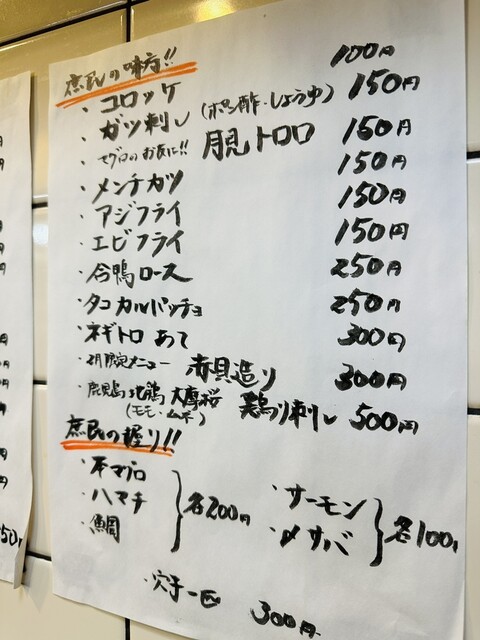 庶民の味方!!
・コロッケ 100円
・ガツ刺し(ポン酢・しょうゆ) 150円
・マグロのお友に!! 月見トロロ 150円
・メンチカツ 150円
・アジフライ 150円
・エビフライ 150円
・合鴨ロース 250円
・タコカルパッチョ 250円
・ネギトロあて 300円
・2月限定メニュー 赤貝造り 300円
・鹿児島地鶏 大摩桜 鶏刺し 500円
(モモ・ムネ)
庶民の握り!!
・本マグロ
・ハマチ 各200円
・鯛
・サーモン
・〆サバ 各100円
・穴子一匹 300円